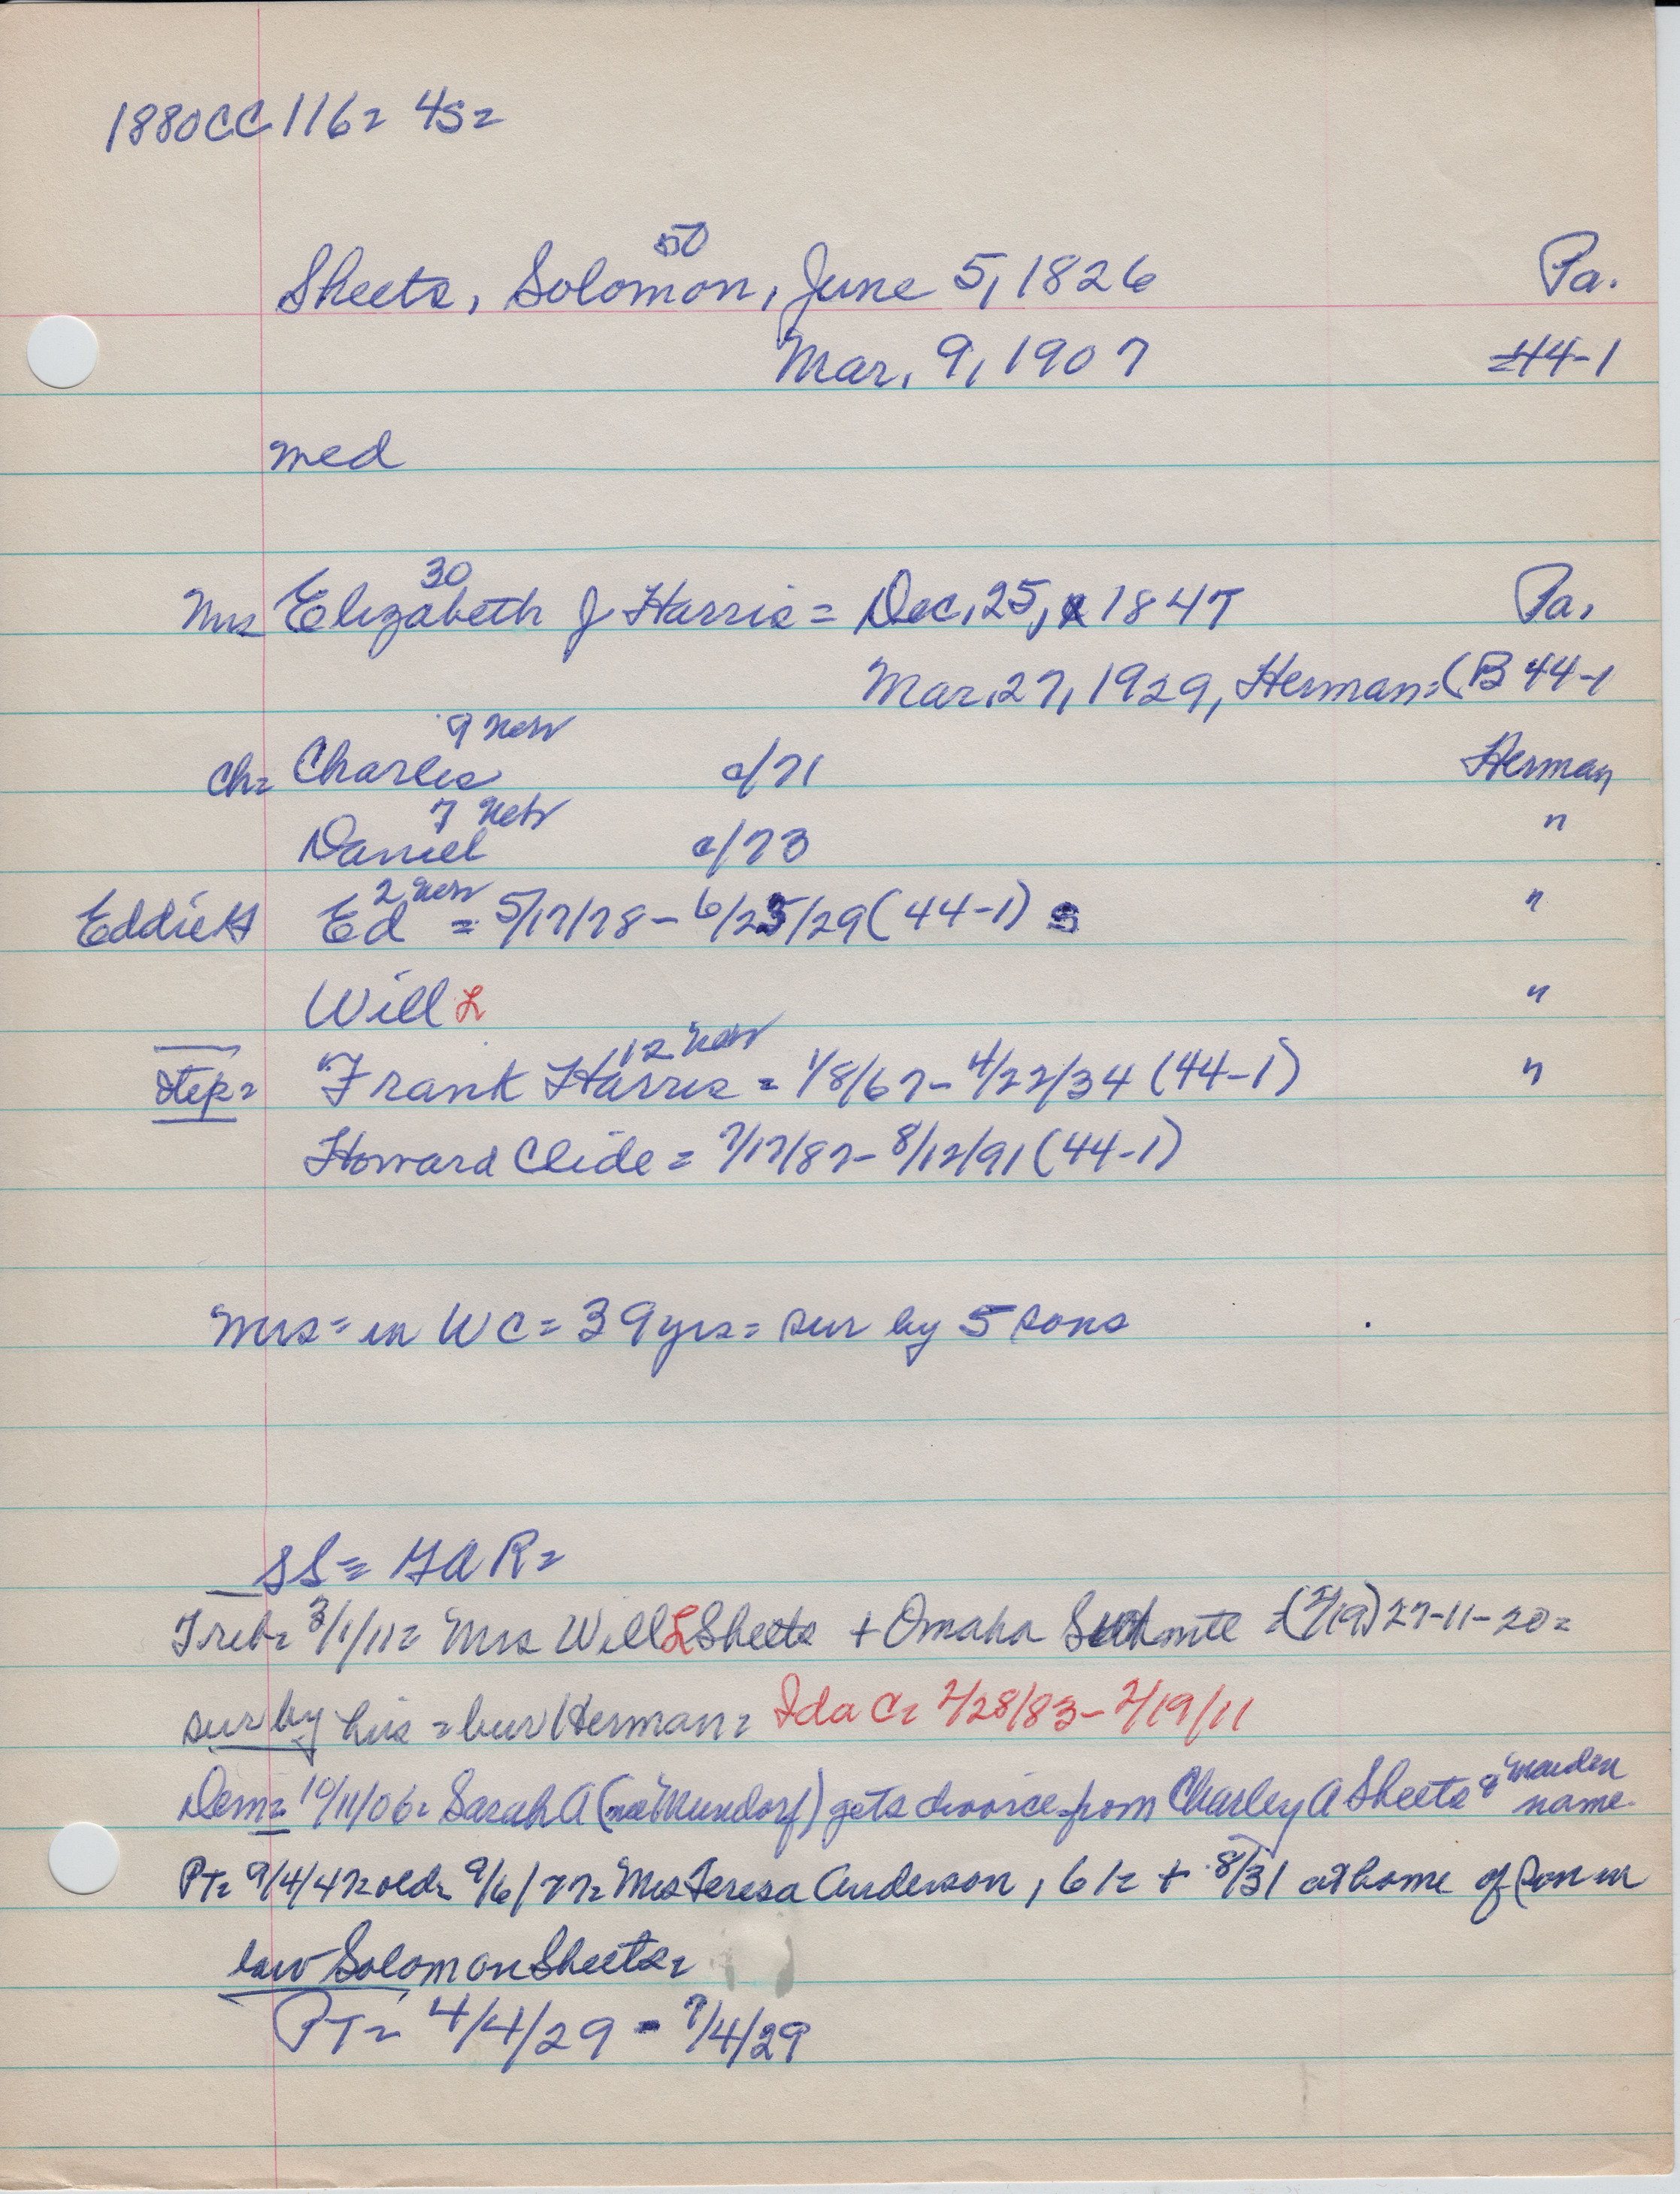 1880CC 116= 4S=
50
Sheets, Solomon, June 5, 1826 Pa.
Mar. 9, 1907 =44-1
med
30
Mrs Elizabeth J Harris = Dec. 25, 1847 Pa.
Mar. 27, 1929, Herman=(B 44-1
9 Neb
Ch= Charles c/71 Herman
7 Neb
Daniel c/73 "
2 Neb
Eddie H Ed = 5/17/78 - 6/25/29 (44-1) S "
Will L "
12 Neb
Step= "Frank Harris = 1/8/67 - 4/22/34 (44-1) "
Howard Clide = 7/17/87 - 8/12/91 (44-1)
Mrs = in WC = 39 yrs = sur by 5 sons
SS = GAR=
Trib= 3/1/11= Mrs Will L Sheets + Omaha = (2/19) 27-11-20=
sur by hus = bur Herman= Ida C= 2/28/83 - 2/19/11
Dem= 10/11/06= Sarah A (nee Mundorf) gets divorce from Charley A Sheets & maiden name.
PT= 9/4/47= old= 9/6/77= Mrs Teresa Anderson, 61= + 8/31 at home of son in
law Solomon Sheets=
PT= 4/4/29 - 7/4/29